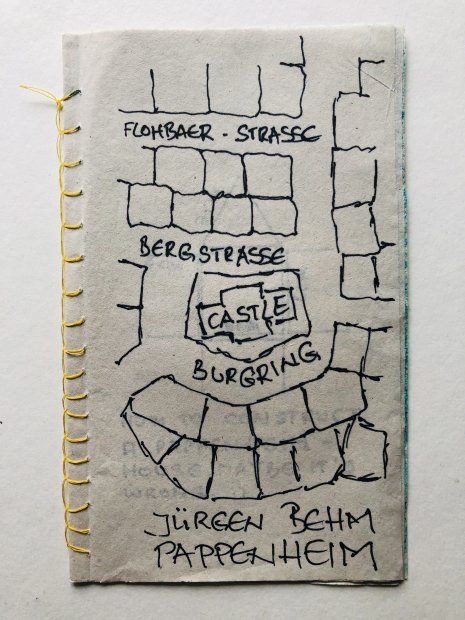 FLOHBAER - STRASSE
BERGSTRASSE
CASTLE
BURGRING
HOUSE MAYBE IT IS
JÜRGEN BEHM
PAPPENHEIM